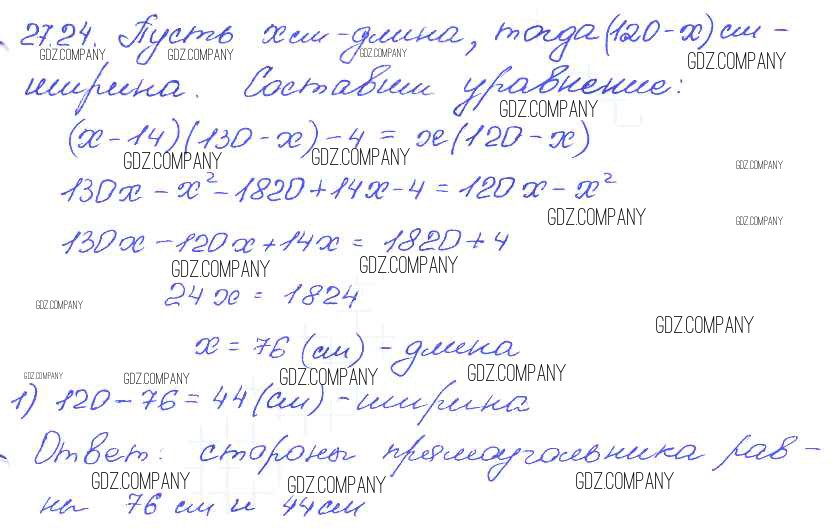 27.24. Пусть x см - длина, тогда (120-x) см -
GDZ.COMPANY GDZ.COMPANY GDZ.COMPANY GDZ.COMPANY
ширина. Составим уравнение:
GDZ.COMPANY
(x-14)(130-x)-4 = x(120-x)
GDZ.COMPANY GDZ.COMPANY GDZ.COMPANY
130x - x² - 1820 + 14x - 4 = 120x - x²
GDZ.COMPANY GDZ.COMPANY
130x - 120x + 14x = 1820 + 4
GDZ.COMPANY GDZ.COMPANY
24x = 1824
GDZ.COMPANY GDZ.COMPANY
x = 76 (см) - длина
GDZ.COMPANY GDZ.COMPANY GDZ.COMPANY GDZ.COMPANY
1) 120 - 76 = 44 (см) - ширина
Ответ: стороны прямоугольника рав-
GDZ.COMPANY GDZ.COMPANY GDZ.COMPANY
ны 76 см и 44 см